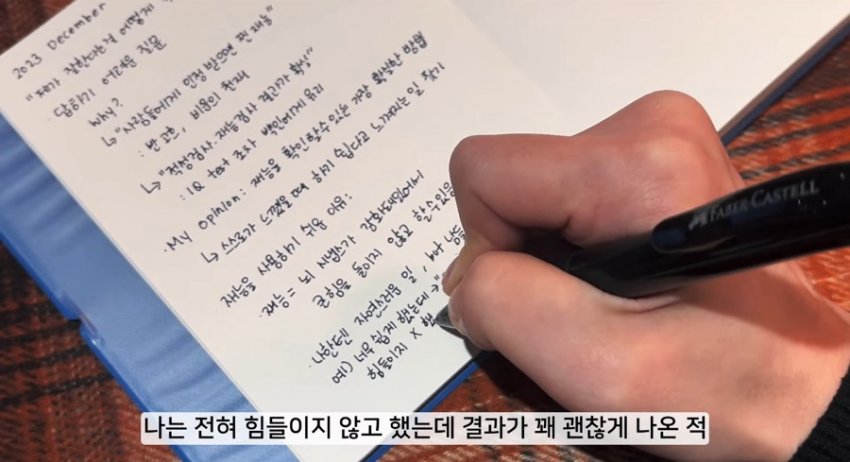 2023 December
"재가 잘한다는걸 어떻게
· 답하기 어려운 질문
Why?
↳ "사람들에게 인정 받으면 찐 재능"
: 반 고흐, 비운의 천재
↳ "적성검사. 재능검사 결과가 확실"
: IQ test 조차 백인에게 유리
· My opinion: 재능을 확인할수있는 가장 확실한 방법
↳ 스스로가 느꼈을때 하기 쉽다고 느껴지는 일 찾기
재능을 사용하기 쉬운 이유:
· 재능 = 뇌 시냅스가 강화돼있음에
큰힘을 들이지 않고 할수있음
· 나한텐 자연스러운 일, but
예) 너무 쉽게 했는데
힘들이지 X
FABER-CASTELL
나는 전혀 힘들이지 않고 했는데 결과가 꽤 괜찮게 나온 적